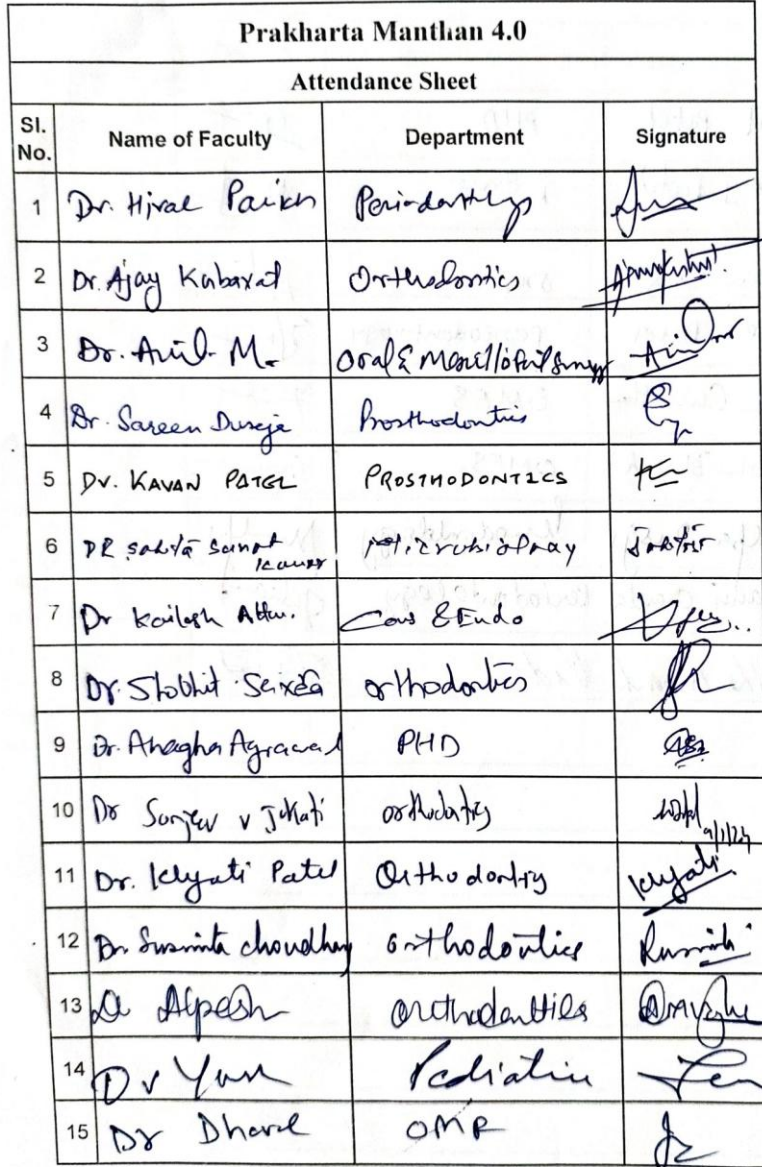 Prakharta Manthan 4.0
Attendance Sheet
Sl. No. Name of Faculty Department Signature
1 Dr. Hiral Parikh
2 Dr. Ajay Kubavat Orthodontics
3 Dr. Anil. M. Oral & Maxillofacial Surgery
4 Dr. Sareen Duseja Prosthodontics
5 Dr. KAVAN PATEL PROSTHODONTICS
6 DR
7 Dr Kailash Attur. Cons & Endo
8 Dr. Shobhit orthodontics
9 Dr. Anagha Agrawal PHD
10 Dr Sanjeev v Jakati orthodontics
11 Dr. Khyati Patel Orthodontry Khyati
12 Dr Susmita choudhary orthodontics
13 Dr Alpesh Orthodontics
14 Dr Yash Pediatric
15 Dr Dhaval OMR